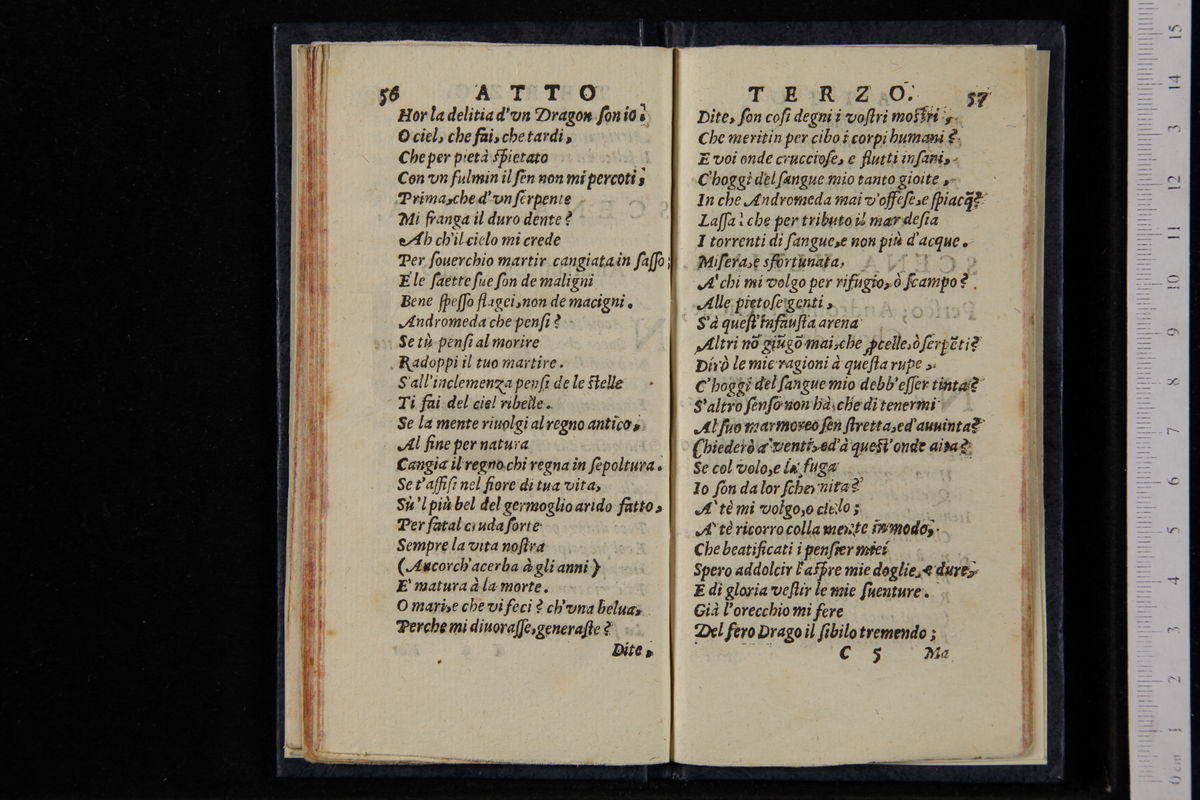 56 ATTO
Hor la delitia d'vn Dragon ſon io?
O ciel, che fai, che tardi,
Che per pietà ſpietato
Con vn fulmin il ſen non mi percoti;
Prima, che d'vn ſerpente
Mi franga il duro dente?
Ah ch'il cielo mi crede
Per ſouerchio martir cangiata in ſaſſo;
E le ſaette ſue ſon de maligni
Bene ſpeſſo flagei, non de macigni.
Andromeda che penſi?
Se tù penſi al morire
Radoppi il tuo martire.
S'all'inclemenza penſi de le ſtelle
Ti fai del ciel ribelle.
Se la mente riuolgi al regno antico,
Al fine per natura
Cangia il regno chi regna in ſepoltura.
Se t'affiſi nel fiore di tua vita,
Sù 'l più bel del germoglio arido fatto,
Per fatal cruda ſorte
Sempre la vita noſtra
(Ancorch'acerba à gli anni)
E' matura à la morte.
O mari, e che vi feci? ch'vna belua,
Perche mi diuoraſſe, generaſte?
Dite,
TERZO. 57
Dite, ſon coſi degni i voſtri moſtri,
Che meritin per cibo i corpi humani?
E voi onde cruccioſe, e flutti inſani,
C'hoggi del ſangue mio tanto gioite,
In che Andromeda mai v'offeſe, e ſpiacq̃?
Laſſa! che per tributo il mar deſia
I torrenti di ſangue, e non più d'acque.
Miſera, e sfortunata,
A' chi mi volgo per rifugio, ò ſcampo?
Alle pietoſe genti,
S'à queſt'infauſta arena
Altri nõ giũgõ mai, che ꝓcelle, ò ſerpẽti?
Dirò le mie ragioni à queſta rupe,
C'hoggi del ſangue mio debb'eſſer tinta?
S'altro ſenſo non hà, che di tenermi
Al ſuo marmoreo ſen ſtretta, ed'auuinta?
Chiederò a' venti, ed'à queſt'onde aita?
Se col volo, e la fuga
Io ſon da lor ſchernita?
A' tè mi volgo, o cielo;
A' tè ricorro colla mente in modo,
Che beatificati i penſier miei
Spero addolcir l'aſpre mie doglie, e dure,
E di gloria veſtir le mie ſuenture.
Già l'orecchio mi fere
Del fero Drago il ſibilo tremendo;
C 5 Ma